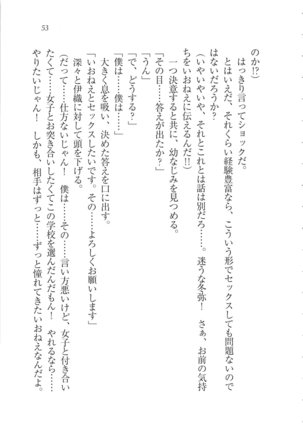 53
のか!?）
　はっきり言ってショックだ。
　とはいえだ、それくらい経験豊富なら、こういう形でセックスしても問題ないのではないだろうか？
（いやいやいや、それとこれとは話は別だろ……。迷うな冬弥！　さぁ、お前の気持ちをいおねえに伝えるんだ!!）
　一つ決意すると共に、幼なじみを見つめる。
「その……答えが出たか？」
「うん」
「で、どうする？」
「僕は……僕は……」
　大きく息を吸い、決めた答えを口に出す。
「いおねえとセックスしたいです。その……よろしくお願いします」
　深々と伊織に対して頭を下げる。
（だって……仕方ないじゃん！　僕は……その……言い方悪いけど、女子と付き合いたくて……女子とお突き合いしたくてこの学校を選んだんだもん！　やれるなら……やりたいじゃん！　しかも、相手はずっと……ずっと憧れてきたいおねえなんだよ。